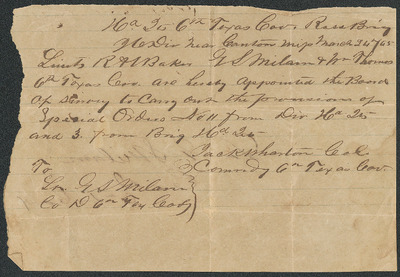 Hd Qr 6th Texas Cav. Ross Brig
Near Canton Miss March 24th/65
Lieuts R H Baker G S Milam & Wm Thomas
6th Texas Cav. are hereby appointed the Board
of Survey to Carry out the provisions of
Special Orders No 11 from Div Hd Qr
and 3. from Brig Hd Qr
Jack Wharton Col
Comndg 6th Texas Cav.
To
Lt G S Milam
Co D 6th Tex Cav